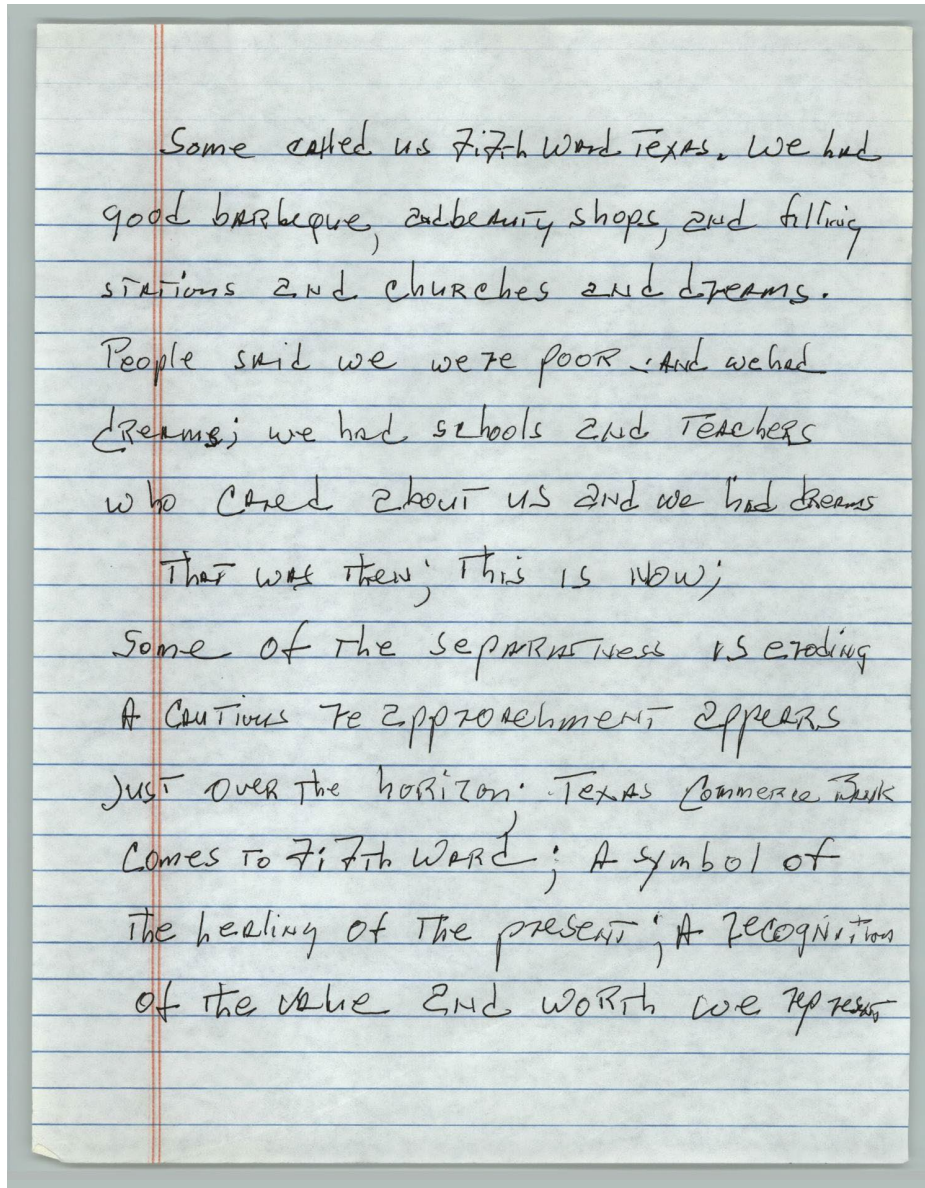 Some called us Fifth Ward Texas. We had
good barbeque, and beauty shops, and filling
stations and churches and dreams.
People said we were poor; And we had
dreams; we had schools and Teachers
who cared about us and we had dreams
That was then; This is now;
Some of the separatness is eroding
A cautious reapproachment appears
just over the horizon; Texas Commerce Bank
Comes to Fifth Ward; A symbol of
The healing of the present; A recognition
of the value and worth we represent